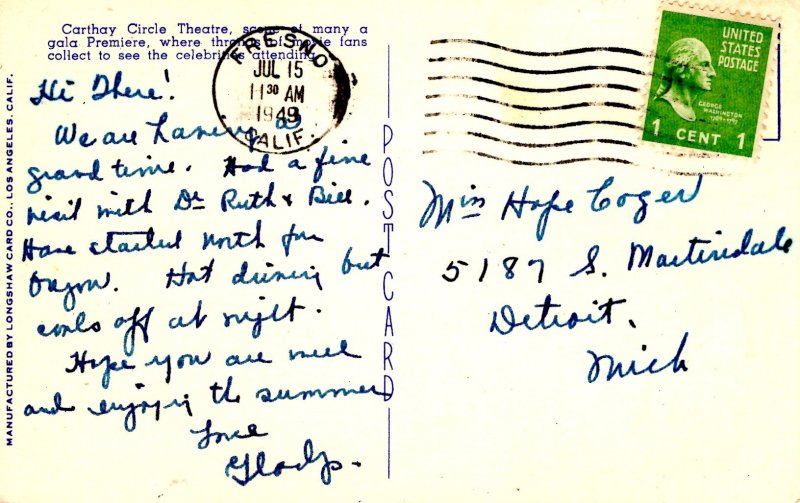 Carthay Circle Theatre, scene of many a
gala Premiere, where throngs of movie fans
collect to see the celebrities attending.
Hi There!
We are having a
grand time. Had a fine
visit with Dr Ruth & Bill.
Have started north for
Oregon. Hot driving but
cools off at night.
Hope you are well
and enjoying the summer
Love
Gladys.
MANUFACTURED BY LONGSHAW CARD CO., LOS ANGELES, CALIF.
POST CARD
FRESNO
JUL 15
11 30 AM
1949
CALIF.
UNITED
STATES
POSTAGE
GEORGE
WASHINGTON
1 CENT 1
Miss Hope Coger
5187 S. Martindale
Detroit,
Mich